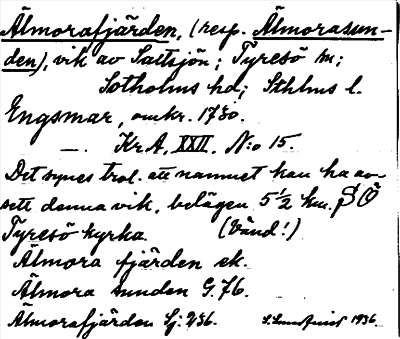 Älmorafjärden, (resp. Älmorasun-
den), vik av Saltsjön; Tyresö sn;
Sotholms hd; Sthlms l.
Engsmar, omkr. 1730.
—. Kr A, XXII. N:o 15.
Det synes trol. att namnet kan ha av-
sett denna vik, belägen 5 1/2 km. SÖ
Tyresö kyrka. (Vänd!)
Älmora fjärden ek.
Älmora sunden G. 76.
Älmorafjärden Sj. 236. 1936.